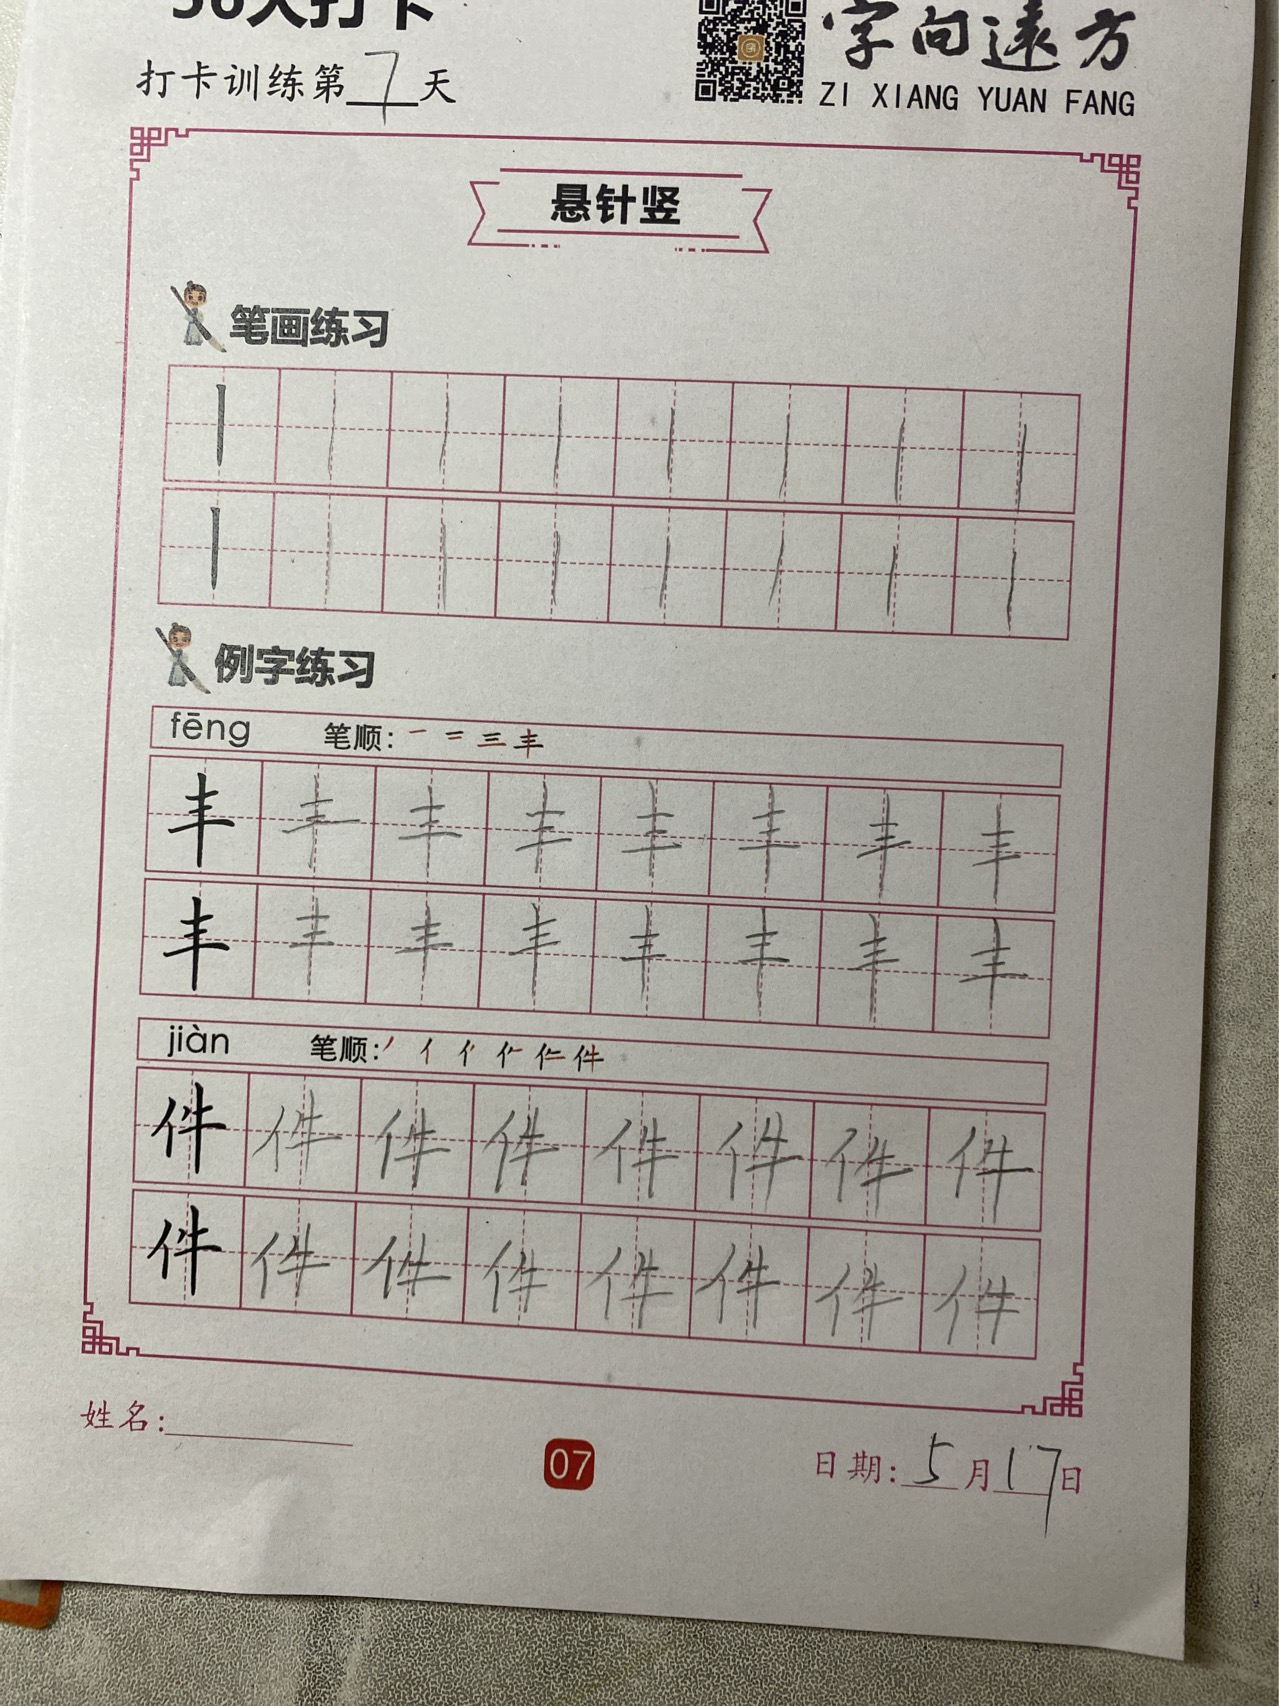 30天打卡
字向遠方
打卡训练第7天
ZI XIANG YUAN FANG
悬针竖
笔画练习
丨 丨 丨 丨 丨 丨 丨 丨
丨 丨 丨 丨 丨 丨 丨 丨
例字练习
fēng 笔顺: 一 二 三 丰
丰 丰 丰 丰 丰 丰 丰 丰
丰 丰 丰 丰 丰 丰 丰 丰
jiàn 笔顺: 丿 亻 亻 仁 件
件 件 件 件 件 件 件 件
件 件 件 件 件 件 件 件
姓名:
07
日期: 5月17日